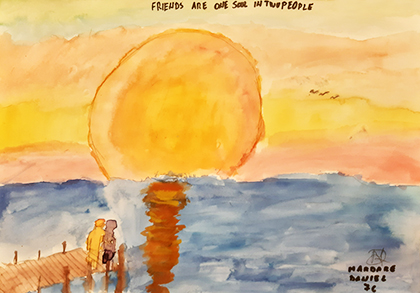 FRIENDS ARE ONE SOUL IN TWO PEOPLE
MARDARE
DANIEL